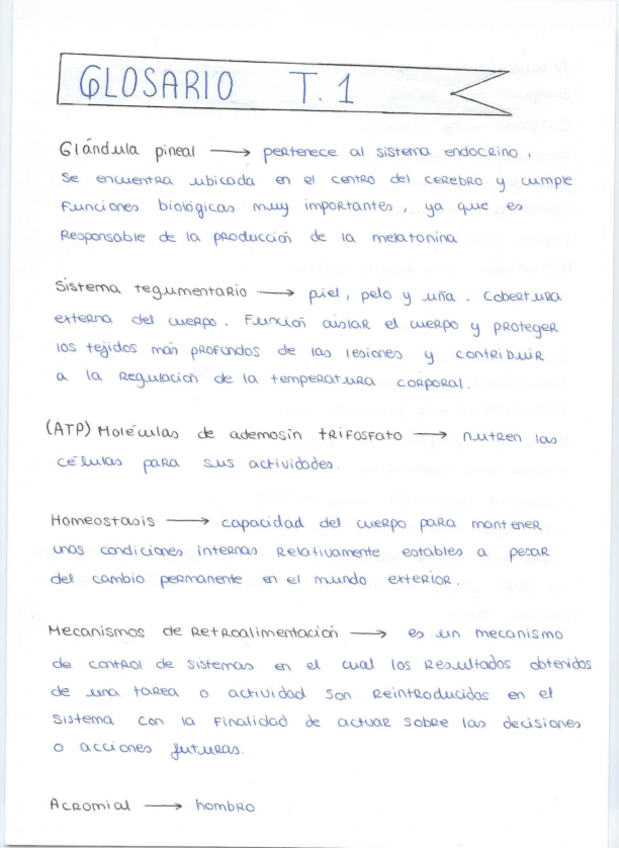 GLOSARIO T.1
Glándula pineal → pertenece al sistema endocrino,
se encuentra ubicada en el centro del cerebro y cumple
funciones biológicas muy importantes, ya que es
Responsable de la producción de la melatonina
Sistema tegumentario → piel, pelo y uña. Cobertura
externa del cuerpo. Función aislar el cuerpo y proteger
los tejidos más profundos de las lesiones y contribuir
a la regulación de la temperatura corporal.
(ATP) Moléculas de ademosín trifosfato → nutren las
células para sus actividades.
Homeostasis → capacidad del cuerpo para mantener
unas condiciones internas relativamente estables a pesar
del cambio permanente en el mundo exterior.
Mecanismos de Retroalimentación → es un mecanismo
de control de sistemas en el cual los resultados obtenidos
de una tarea o actividad son reintroducidos en el
sistema con la finalidad de actuar sobre las decisiones
o acciones futuras.
Acromial → hombro